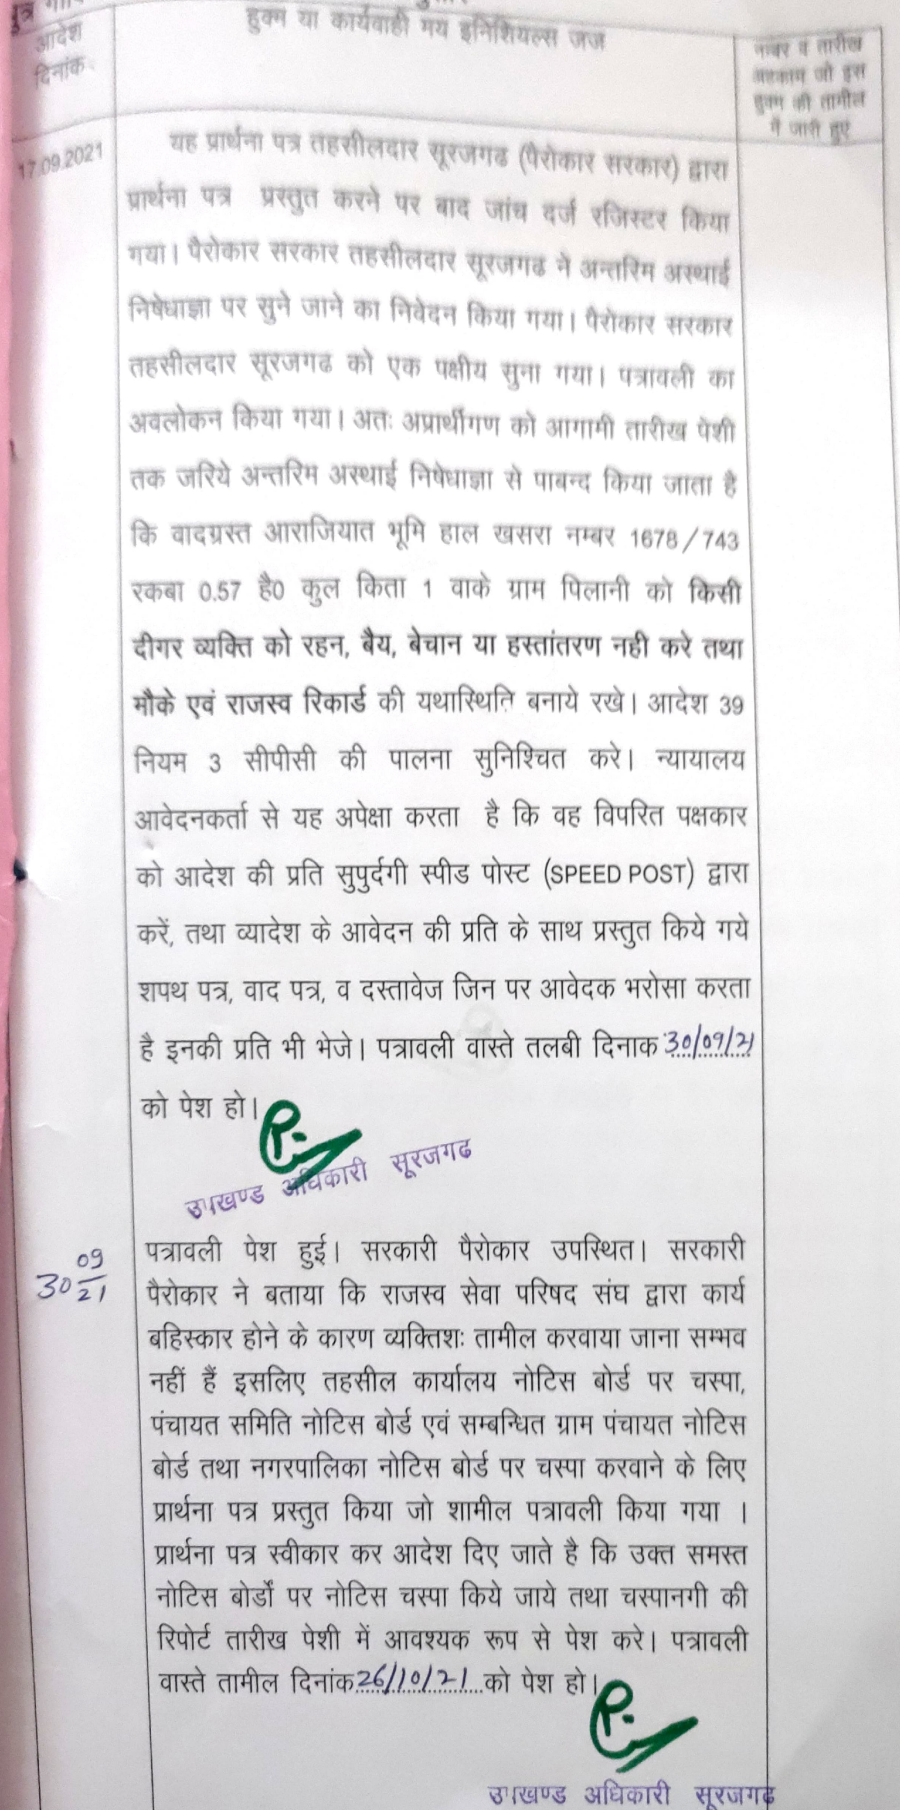 आदेश
दिनांक
हुक्म या कार्यवाही मय इनिशियल्स जज
नम्बर व तारीख
अहकाम जो इस
हुक्म की तामील
में जारी हुए
17.09.2021
यह प्रार्थना पत्र तहसीलदार सूरजगढ (पैरोकार सरकार) द्वारा
प्रार्थना पत्र प्रस्तुत करने पर बाद जांच दर्ज रजिस्टर किया
गया। पैरोकार सरकार तहसीलदार सूरजगढ ने अन्तरिम अस्थाई
निषेधाज्ञा पर सुने जाने का निवेदन किया गया। पैरोकार सरकार
तहसीलदार सूरजगढ को एक पक्षीय सुना गया। पत्रावली का
अवलोकन किया गया। अतः अप्रार्थीगण को आगामी तारीख पेशी
तक जरिये अन्तरिम अस्थाई निषेधाज्ञा से पाबन्द किया जाता है
कि वादग्रस्त आराजियात भूमि हाल खसरा नम्बर 1678/743
रकबा 0.57 है0 कुल किता 1 वाके ग्राम पिलानी को किसी
दीगर व्यक्ति को रहन, बैय, बेचान या हस्तांतरण नही करे तथा
मौके एवं राजस्व रिकार्ड की यथास्थिति बनाये रखे। आदेश 39
नियम 3 सीपीसी की पालना सुनिश्चित करे। न्यायालय
आवेदनकर्ता से यह अपेक्षा करता है कि वह विपरित पक्षकार
को आदेश की प्रति सुपुर्दगी स्पीड पोस्ट (SPEED POST) द्वारा
करें, तथा व्यादेश के आवेदन की प्रति के साथ प्रस्तुत किये गये
शपथ पत्र, वाद पत्र, व दस्तावेज जिन पर आवेदक भरोसा करता
है इनकी प्रति भी भेजे। पत्रावली वास्ते तलबी दिनाक 30/09/21
को पेश हो।
उपखण्ड अधिकारी सूरजगढ
30 09/21
पत्रावली पेश हुई। सरकारी पैरोकार उपस्थित। सरकारी
पैरोकार ने बताया कि राजस्व सेवा परिषद संघ द्वारा कार्य
बहिस्कार होने के कारण व्यक्तिशः तामील करवाया जाना सम्भव
नहीं हैं इसलिए तहसील कार्यालय नोटिस बोर्ड पर चस्पा,
पंचायत समिति नोटिस बोर्ड एवं सम्बन्धित ग्राम पंचायत नोटिस
बोर्ड तथा नगरपालिका नोटिस बोर्ड पर चस्पा करवाने के लिए
प्रार्थना पत्र प्रस्तुत किया जो शामील पत्रावली किया गया ।
प्रार्थना पत्र स्वीकार कर आदेश दिए जाते है कि उक्त समस्त
नोटिस बोर्डों पर नोटिस चस्पा किये जाये तथा चस्पानगी की
रिपोर्ट तारीख पेशी में आवश्यक रूप से पेश करे। पत्रावली
वास्ते तामील दिनांक 26/10/21 को पेश हो।
उपखण्ड अधिकारी सूरजगढ